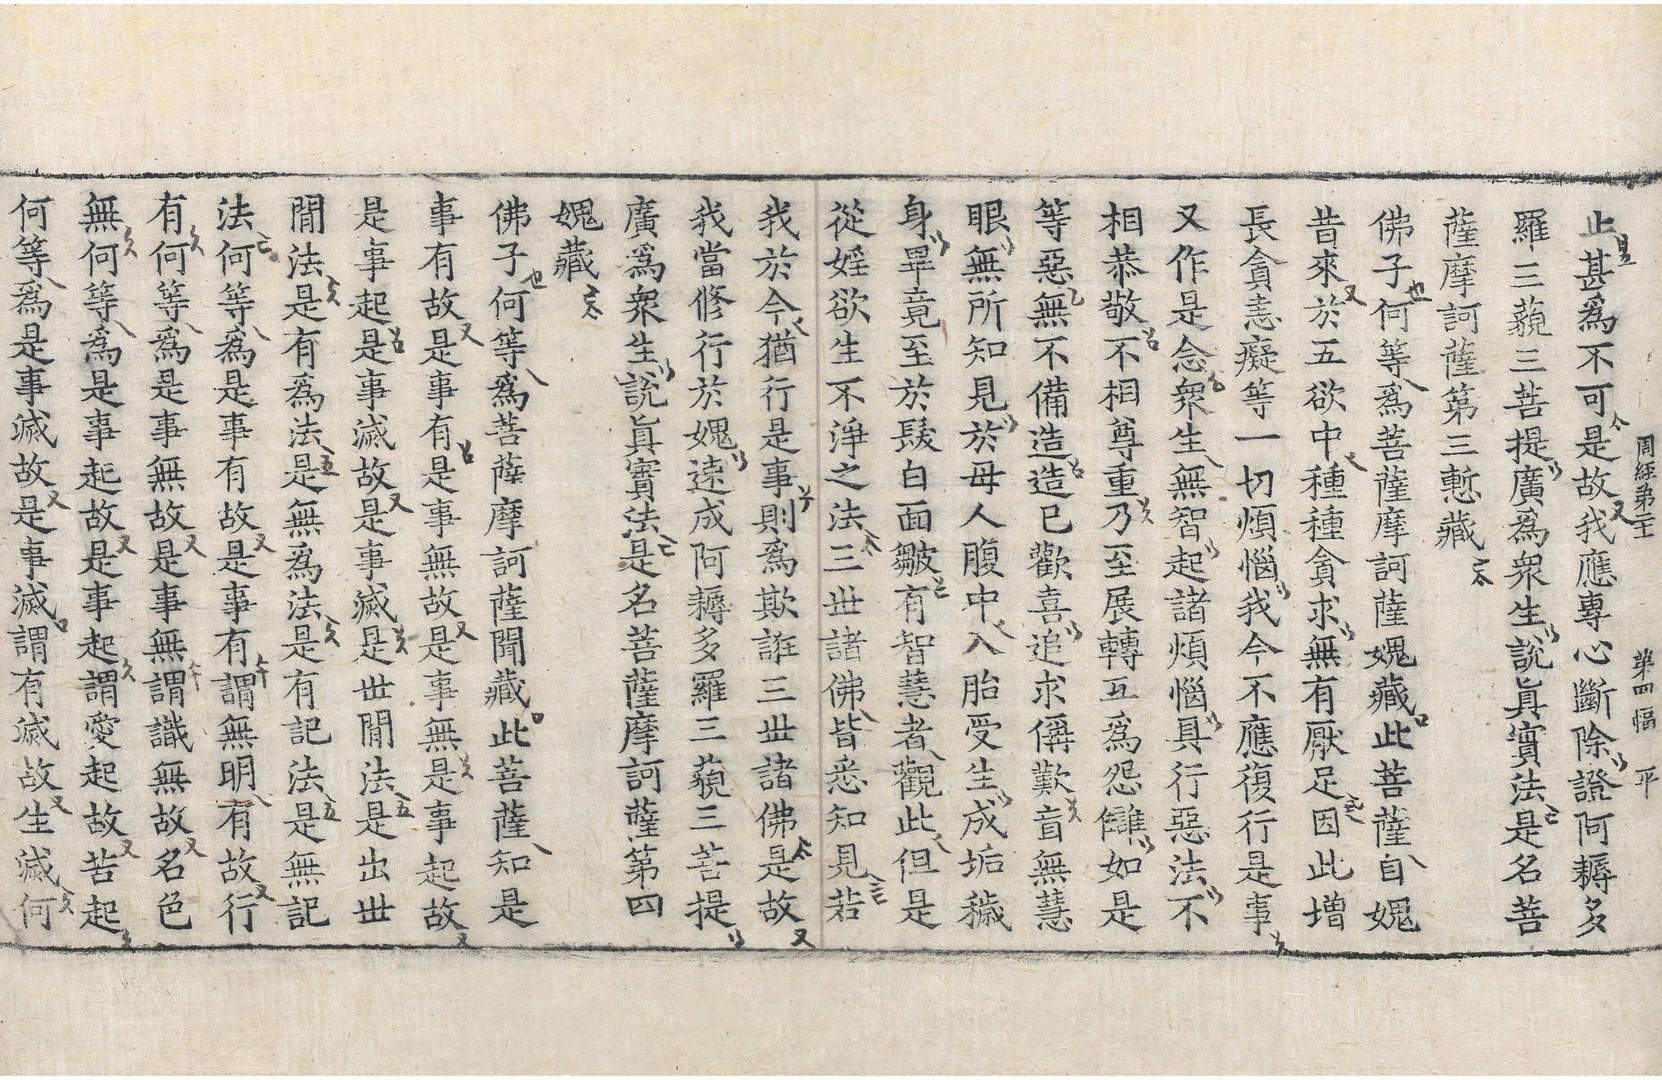 周經第二十 第四幅 平
止甚爲不可是故我應專心斷除證阿耨多
羅三藐三菩提廣爲衆生說眞實法是名菩
薩摩訶薩第三慙藏
佛子何等爲菩薩摩訶薩媿藏此菩薩自媿
昔來於五欲中種種貪求無有厭足因此增
長貪恚癡等一切煩惱我今不應復行是事
又作是念衆生無智起諸煩惱具行惡法不
相恭敬不相尊重乃至展轉互爲怨讎如是
等惡無不備造造已歡喜追求偁歎盲無慧
眼無所知見於母人腹中入胎受生成垢穢
身畢竟至於髮白面皺有智慧者觀此但是
從婬欲生不淨之法三世諸佛皆悉知見若
我於今猶行是事則爲欺誑三世諸佛是故
我當修行於媿速成阿耨多羅三藐三菩提
廣爲衆生說眞實法是名菩薩摩訶薩第四
媿藏
佛子何等爲菩薩摩訶薩聞藏此菩薩知是
事有故是事有是事無故是事無是事起故
是事起是事滅故是事滅是世閒法是出世
閒法是有爲法是無爲法是有記法是無記
法何等爲是事有故是事有謂無明有故行
有何等爲是事無故是事無謂識無故名色
無何等爲是事起故是事起謂愛起故苦起
何等爲是事滅故是事滅謂有滅故生滅何